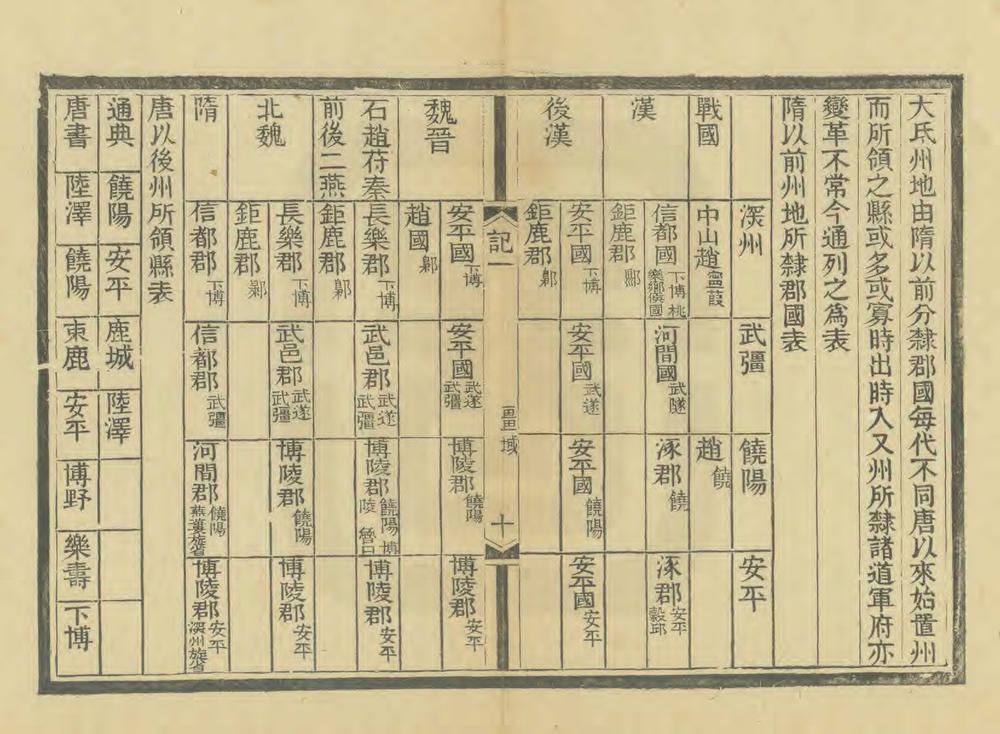 大氏州地由隋以前分隸郡國每代不同唐以來始置州
而所領之縣或多或寡時出時入又州所隸諸道軍府亦
變革不常今通列之為表
隋以前州地所隸郡國表
深州 武彊 饒陽 安平
戰國 中山趙 趙饒
漢 信都國下博桃樂鄉侯國 河間國武隧 涿郡饒 涿郡安平
鉅鹿郡鄡
後漢 安平國下博 安平國武遂 安平國饒陽 安平國安平
鉅鹿郡鄡
記一 畺域 十
魏晉 安平國下博 安平國武遂武彊 博陵郡饒陽 博陵郡安平
趙國鄡
石趙苻秦 長樂郡下博 武邑郡武遂武彊 博陵郡饒陽博陵魯口 博陵郡安平
前後二燕 鉅鹿郡鄡
北魏 長樂郡下博 武邑郡武遂武彊 博陵郡饒陽 博陵郡安平
鉅鹿郡鄡
隋 信都郡下博 信都郡武彊 河間郡饒陽蕪蔞旋省 博陵郡安平深州旋省
唐以後州所領縣表
通典 饒陽 安平 鹿城 陸澤
唐書 陸澤 饒陽 束鹿 安平 博野 樂壽 下博